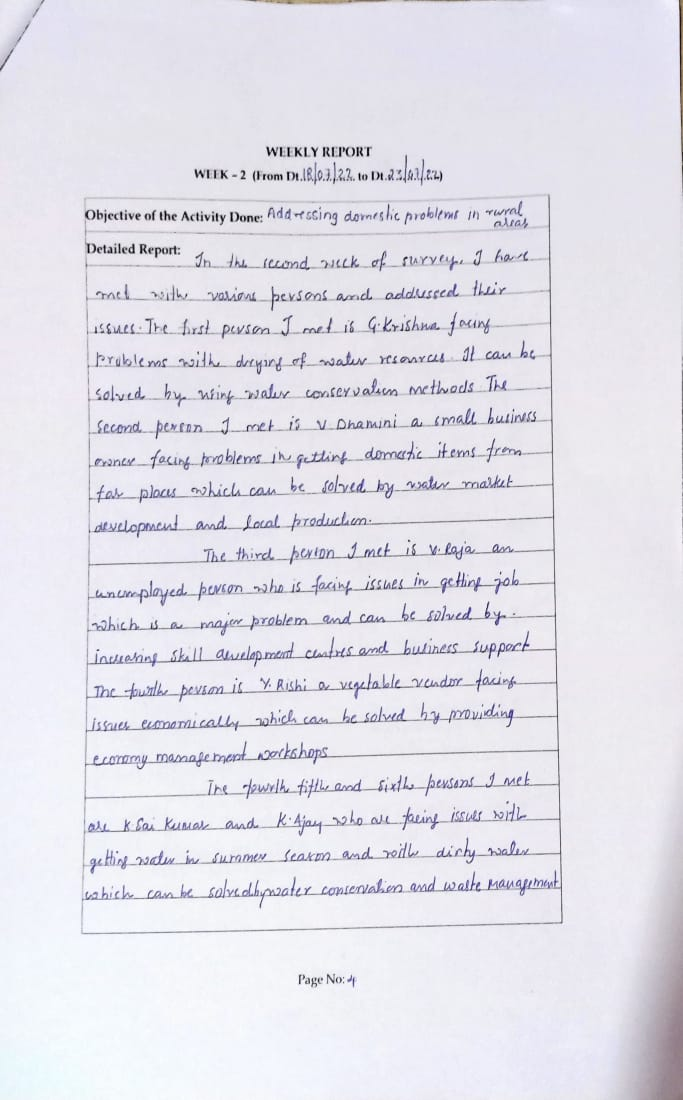 WEEKLY REPORT
WEEK - 2 (From Dt.18/07/22. to Dt.23/07/22)
Objective of the Activity Done: Addressing domestic problems in rural
areas
Detailed Report: In the second week of survey, I have
met with various persons and addressed their
issues. The first person I met is G.Krishna facing
Problems with drying of water resources. It can be
solved by using water conservation methods. The
second person I met is V Dhamini a small business
owner facing problems in getting domestic items from
far places which can be solved by water market
development and local production.
The third person I met is V. Raja an
unemployed person who is facing issues in getting job
which is a major problem and can be solved by.
increasing skill development centres and business support
The fourth person is Y. Rishi a vegetable vendor facing
issues economically which can be solved by providing
economy management workshops
The fourth fifth and sixth persons I met
are K Sai Kumar and K. Ajay who are facing issues with
getting water in summer season and with dirty water
which can be solved by water conservation and waste management
Page No: 4